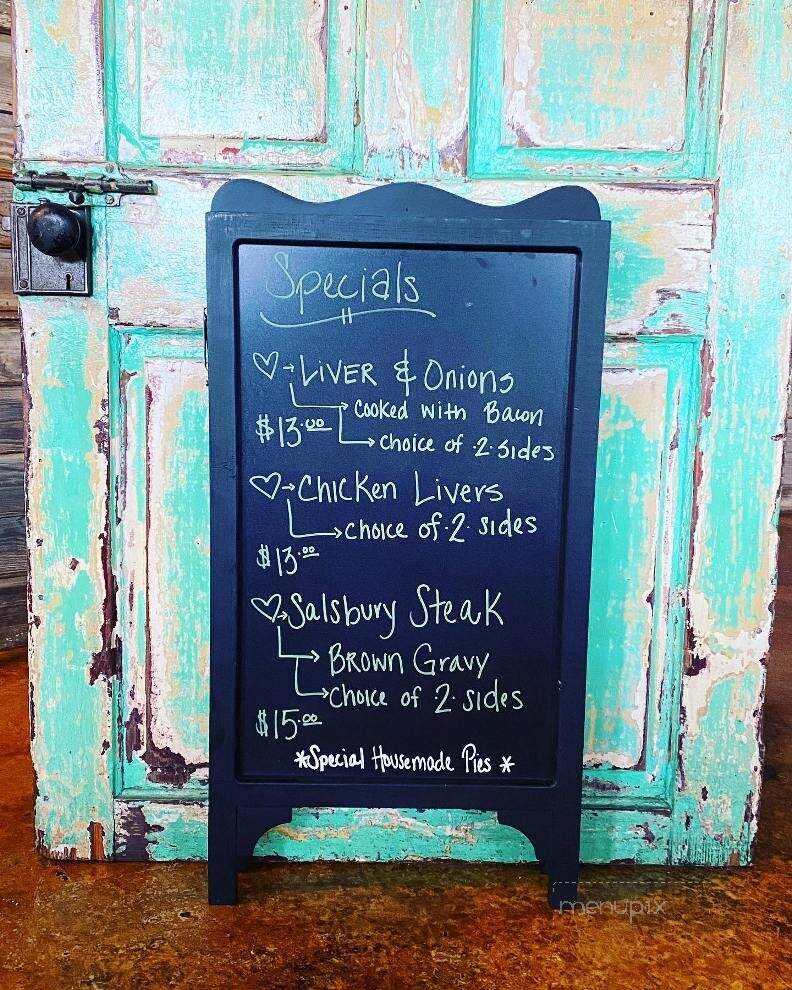 Specials
♡→LIVER & Onions
cooked with Bacon
$13.00
choice of 2 sides
♡→Chicken Livers
choice of 2 sides
$13.00
♡→Salsbury Steak
Brown Gravy
choice of 2 sides
$15.00
*Special Housemade Pies *
menupix